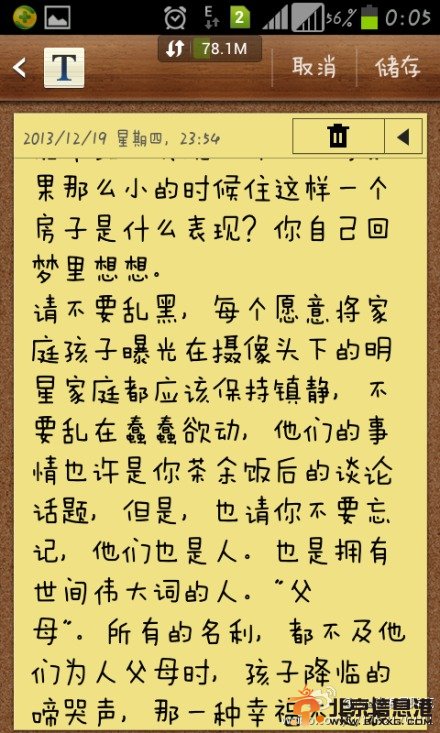 E
2
56%
0:05
78.1M
T
取消
储存
2013/12/19 星期四, 23:54
果那么小的时候住这样一个
房子是什么表现？你自己回
梦里想想。
请不要乱黑，每个愿意将家
庭孩子曝光在摄像头下的明
星家庭都应该保持镇静，不
要乱在蠢蠢欲动，他们的事
情也许是你茶余饭后的谈论
话题，但是，也请你不要忘
记，他们也是人。也是拥有
世间伟大词的人。“父
母”。所有的名利，都不及他
们为人父母时，孩子降临的
啼哭声，那一种幸福
北京信息港